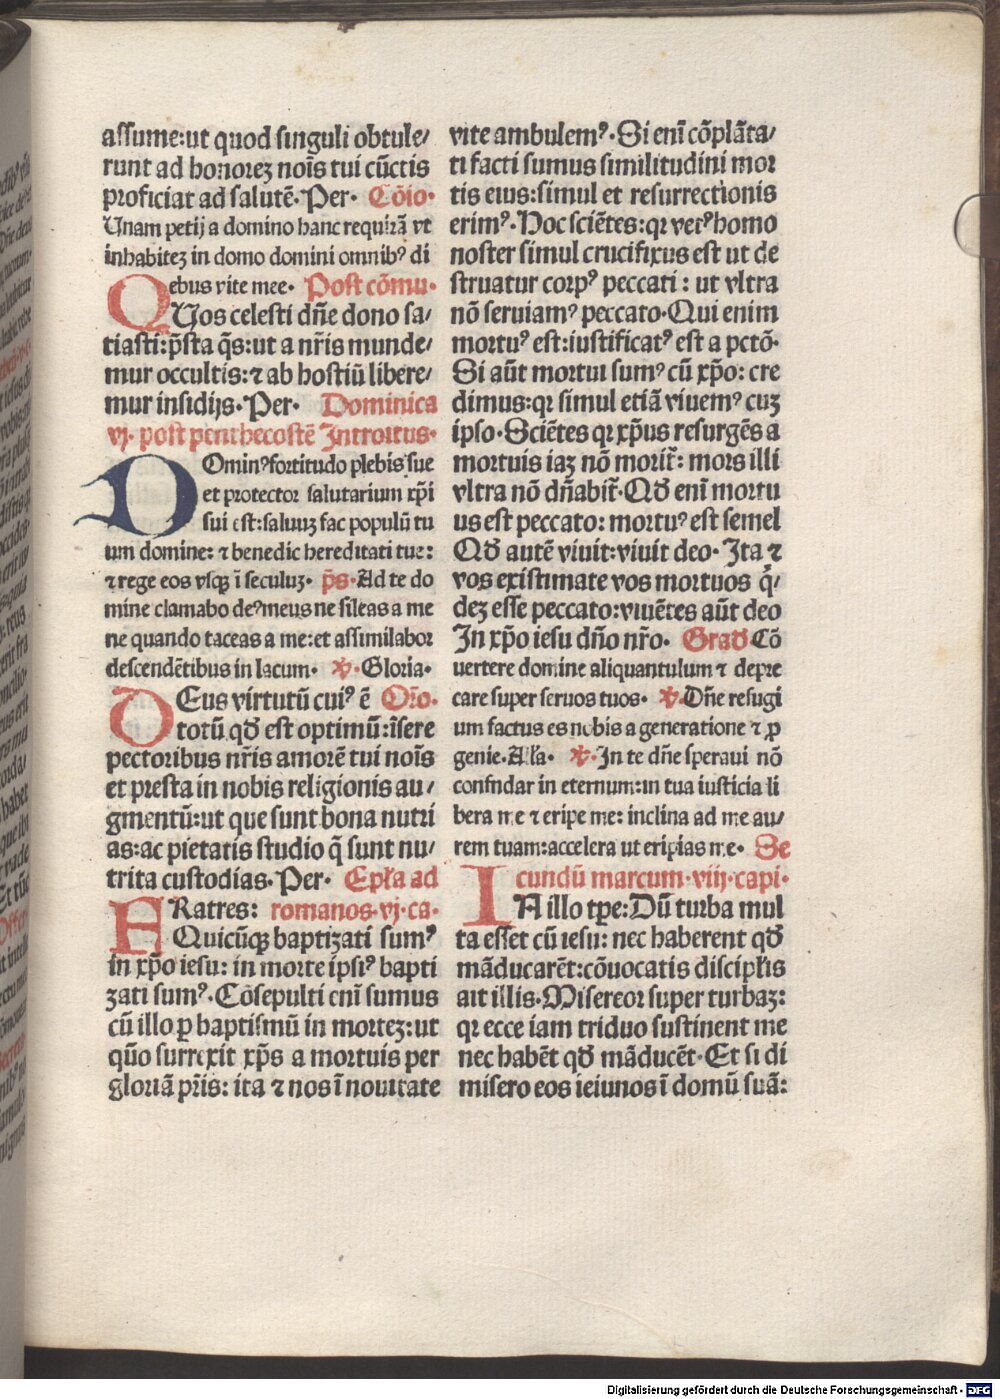 assume:ut quod singuli obtule/
runt ad honorez noīs tui cūctis
proficiat ad salutē. Per. Cōio.
Unam petij a domino hanc requirā vt
inhabitez in domo domini omnibꝰ di
ebus vite mee. Post cōmu.
QUos celesti dn̄e dono sa/
tiasti:p̄sta q̄s:ut a nr̄is munde/
mur occultis:⁊ ab hostiū libere/
mur insidijs. Per. Dominica
vj. post penthecostē Introitus.
DOminꝰ fortitudo plebis sue
et protector salutarium xp̄i
sui est:saluuz fac populū tu
um domine: ⁊ benedic hereditati tue:
⁊ rege eos vsqꝫ ī seculuz. p̄s. Ad te do
mine clamabo deꝰ meus ne sileas a me
ne quando taceas a me:et assimilabor
descendētibus in lacum. ℣. Gloria.
DEus virtutū cuiꝰ ē Or̄o.
totū qd̄ est optimū:īsere
pectoribus nr̄is amorē tui noīs
et presta in nobis religionis au/
gmentū:ut que sunt bona nutri
as:ac pietatis studio q̄ sunt nu/
trita custodias. Per. Ep̄la ad
FRatres: romanos. vj. ca.
Quicūqꝫ baptizati sumꝰ
in xp̄o iesu: in morte ipsiꝰ bapti
zati sumꝰ. Cōsepulti eni sumus
cū illo ꝑ baptismū in mortez:ut
quō surrexit xp̄s a mortuis per
gloriā pr̄is: ita ⁊ nos ī nouitate
vite ambulemꝰ. Si enī cōplāta/
ti facti sumus similitudini mor
tis eius:simul et resurrectionis
erimꝰ. Hoc sciētes:qr vetꝰ homo
noster simul crucifixus est ut de
struatur corpꝰ peccati : ut vltra
nō seruiamꝰ peccato. Qui enim
mortuꝰ est:iustificatꝰ est a pctō.
Si aūt mortui sumꝰ cū xp̄o: cre
dimus:qr simul etiā viuemꝰ cuz
ipso. Sciētes qr xp̄us resurgēs a
mortuis iaz nō morit̄: mors illi
vltra nō dn̄abit̄. Qd̄ enī mortu
us est peccato: mortuꝰ est semel
Qd̄ autē viuit:viuit deo. Ita ⁊
vos existimate vos mortuos q̇/
dez esse peccato:viuētes aūt deo
In xp̄o iesu dn̄o nr̄o. Grad̄ Cō
uertere domine aliquantulum ⁊ depre
care super seruos tuos. ℣. Dn̄e refugi
um factus es nobis a generatione ⁊ ꝓ
genie. Al̄la. ℣. In te dn̄e speraui nō
confndar in eternum:in tua iusticia li
bera me ⁊ eripe me: inclina ad me au/
rem tuam:accelera ut eripias me. Se
cundū marcum. viij. capi.
IN illo tp̄e: Dū turba mul
ta esset cū iesu: nec haberent qd̄
māducarēt:cōuocatis discipl̄is
ait illis. Misereor super turbaz:
qr ecce iam triduo sustinent me
nec habēt qd̄ māducēt. Et si di
misero eos ieiunos ī domū suā:
Digitalisierung gefördert durch die Deutsche Forschungsgemeinschaft - DFG